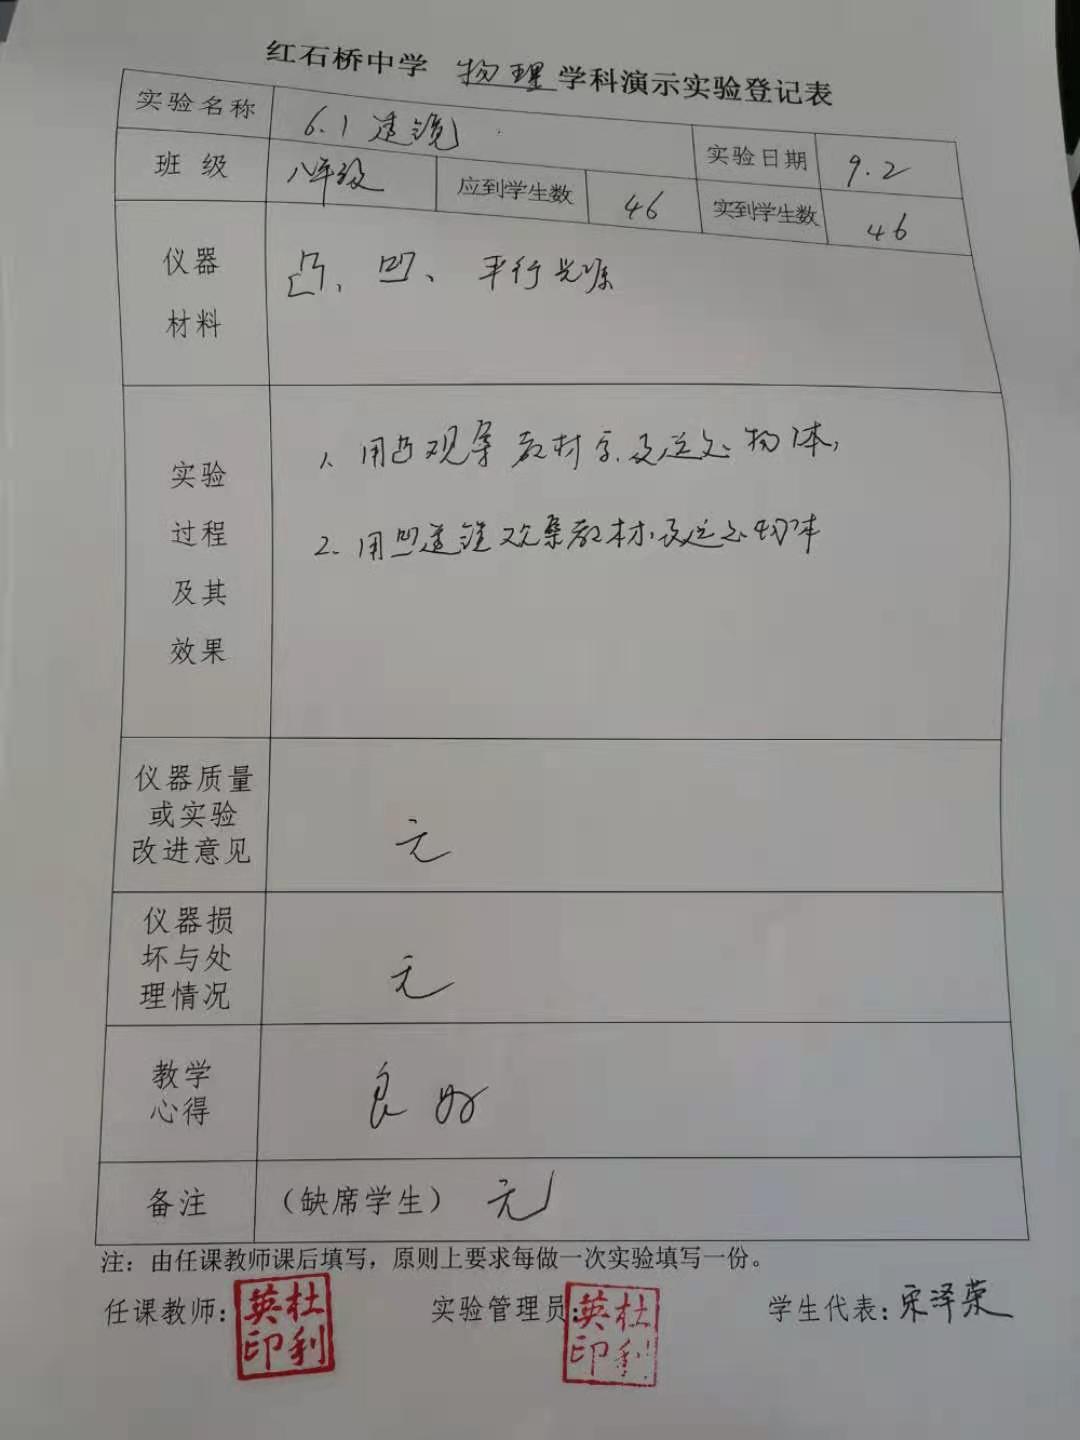 红石桥中学 物理 学科演示实验登记表
实验名称 6.1 透镜 实验日期 9.2
班 级 八年级 应到学生数 46 实到学生数 46
仪器
材料
凸、凹、平行光源
实验
过程
及其
效果
1、用凸观察教材字及远处物体,
2、用凹透镜观察教材及远处物体
仪器质量
或实验
改进意见
无
仪器损
坏与处
理情况
无
教学
心得
良好
备注 (缺席学生) 无
注:由任课教师课后填写,原则上要求每做一次实验填写一份。
任课教师: 杜利英印 实验管理员: 杜利英印 学生代表: 宋泽荣